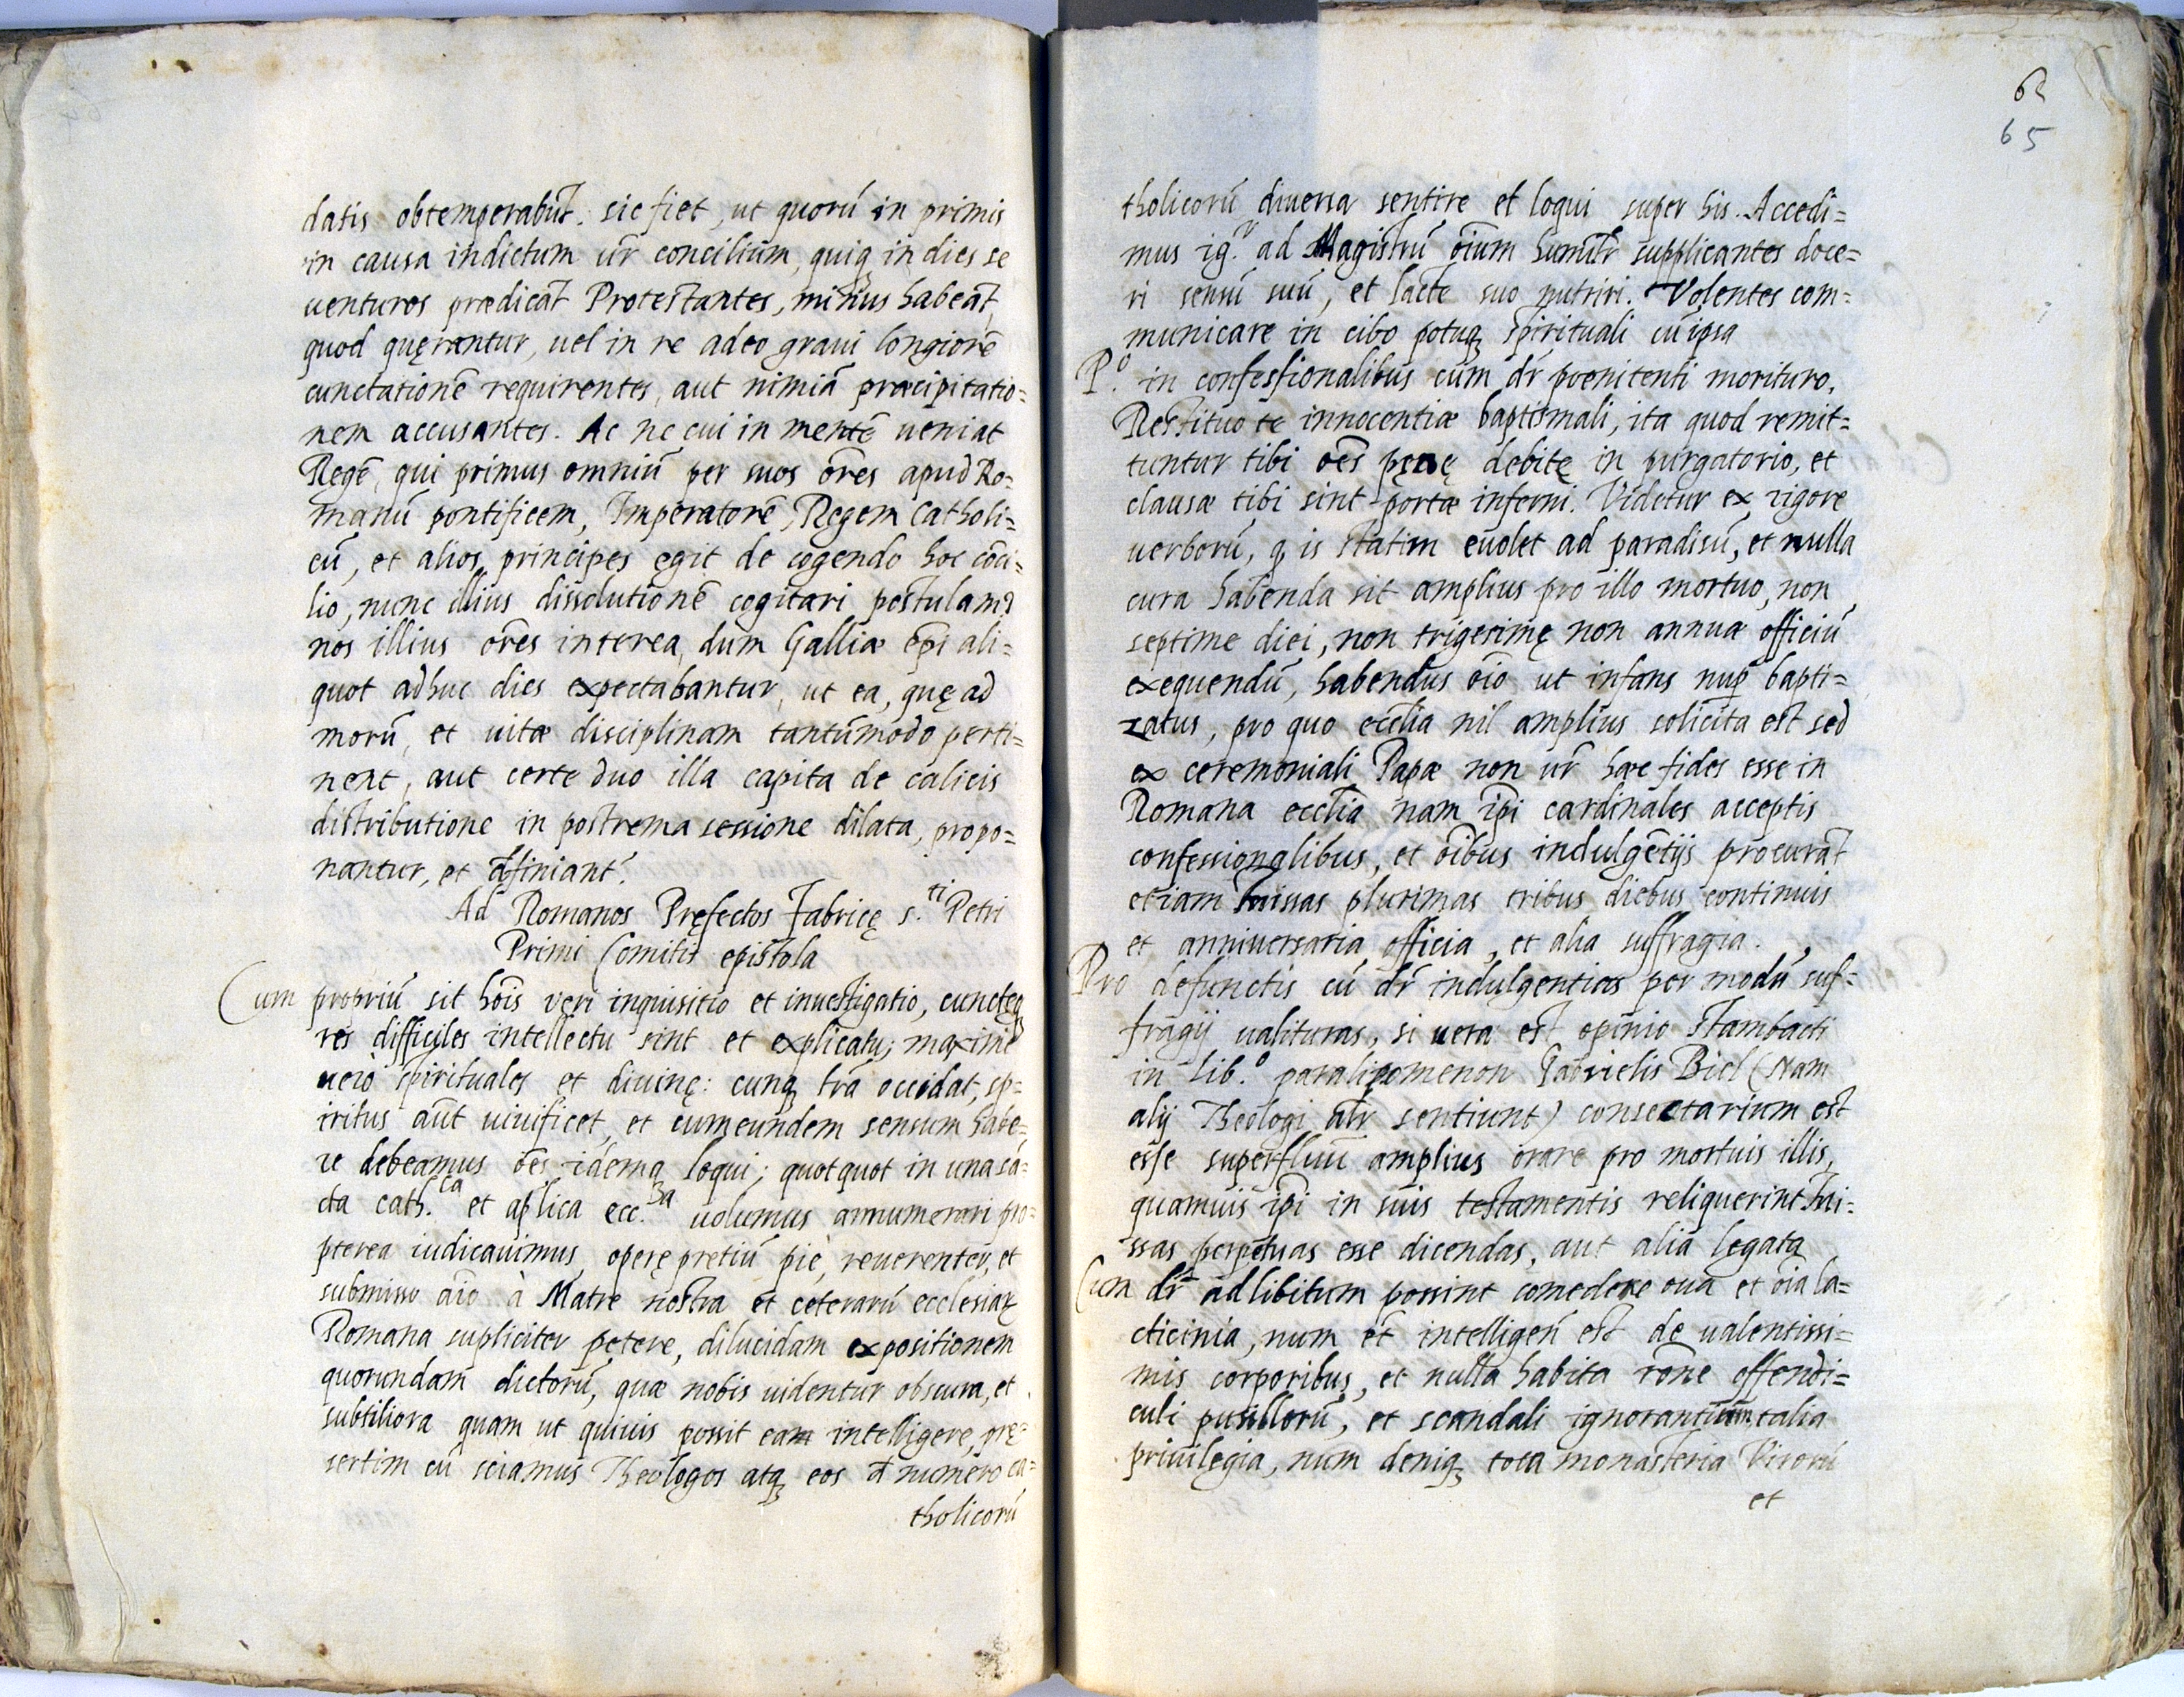 datis obtemperabūt. sic fiet, ut quorū in primis
in causa indictum ūr concilium, quiq; in dies se
uenturos prædicāt Protestantes, minus habeāt,
quod quęrantur, uel in re adeo graui longiorē
cunctationē requirentes, aut nimiā præcipitatio=
nem accusantes. Ac ne cui in mentē ueniat
Regē, qui primus omniū per suos ōres apud Ro=
manū pontificem, Imperatorē, Regem Catholi=
cū, et alios principes egit de cogendo hoc cōci=
lio, nunc illius dissolutionē cogitari, postulam9
nos illius ōres interea, dum Galliæ ēpi ali=
quot adhuc dies expectabantur, ut ea, quę ad
morū, et uitæ disciplinam tantūmodo perti=
nent, aut certe duo illa capita de calicis
distributione in postrema sessione dilata, propo=
nantur, et d̄finiant̄.
Ad Romanos Pręfectos Fabricę s.ti Petri
Primi Comitis epistola
Cum propriū sit hōis veri inquisitio et inuestigatio, cunctęq;
res difficiles intellectu sint et explicatu; maxime
uero spirituales et diuinę: cunq; l̄ra occidat, sp=
iritus aūt uiuificet, et cum eundem sensum habe=
re debeamus ōes idemq; loqui; quotquot in una sā=
cta cath.ca et aplica ecc.sia uolumus annumerari pro=
pterea iudicauimus, operę pretiū piè, reuerenter, et
submisso aīo à Matre nostra et ceterarū ecclesiaꝝ
Romana supliciter petere, dilucidam expositionem
quorundam dictorū, quæ nobis uidentur obscura, et
subtiliora quam ut quiuis possit eam intelligere, prę=
sertim cū sciamus Theologos atq; eos d̄ numero ca=
tholicorū
62
65
tholicorū diuersa sentire et loqui super his. Accedi=
mus ig.r ad Magistrū oīum humilr̄ supplicantes doce=
ri sensū suū, et lacte suo nutriri. Volentes com=
municare in cibo potuq; spirituali cū ipsa
P.o in confessionalibus cum dr̄ pœnitenti morituro,
Restituo te innocentiæ baptismali, ita quod remit=
tuntur tibi oēs pęnę debitę in purgatorio, et
clausæ tibi sint portæ inferni. Videtur ex rigore
uerborū, q is statim euolet ad paradisū, et nulla
cura habenda sit amplius pro illo mortuo, non
septime diei, non trigesimę non annuæ officiū
exequendū, habendus oīo ut infans nup̄ bapti=
zatus, pro quo eccl̄ia nil amplius solicita est sed
ex ceremoniali Papæ non ūr hæc fides esse in
Romana eccl̄ia nam ip̄i cardinales acceptis
confessionalibus, et oībus indulgētijs procurāt
etiam missas plurimas tribus diebus continuis
et anniuersaria officia, et alia suffragia.
Pro defunctis cū dr̄ indulgentias per modū suf=
fragij ualituras, si uera est opinio Stambacti
in lib.o paralipomenon Gabrielis Biel (Nam
alij Theologi alr̄ sentiunt) consectarium est
esse superfluū amplius orare pro mortuis illis,
quamuis ip̄i in suis testamentis reliquerint mi=
ssas perpetuas esse dicendas, aut alia legata
Cum dr̄ ad libitum possint comedere oua et oīa la=
cticinia, num et̄ intelligen̄ est de ualentissi=
mis corporibus, et nulla habita rōne offendi=
culi pusillorū, et scandali ignorantium, talia
priuilegia, num deniq; tota monasteria Virorū
et